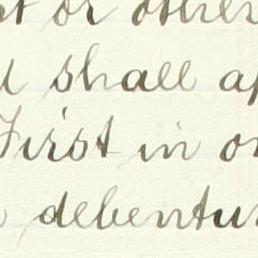 or other
shall
First in
debentu